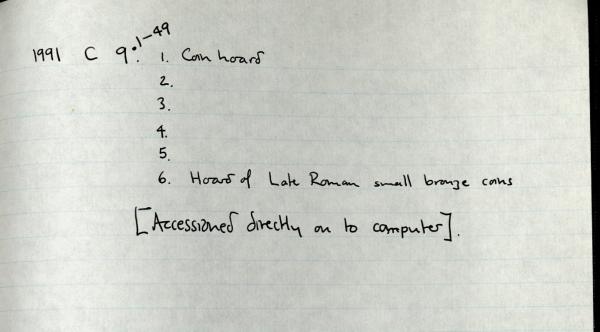 1991 C 9:1-49
1. Coin hoard
2.
3.
4.
5.
6. Hoard of Late Roman small bronze coins
[Accessioned directly on to computer].